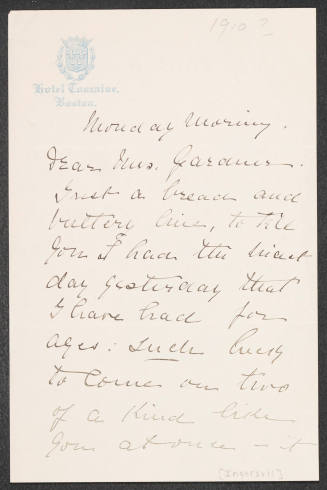 1910?
Hotel Touraine,
Boston.
Monday Morning.
Dear Mrs. Gardner.
Just a bread and
buttery line, to tell
you I had the nicest
day yesterday that
I have had for
ages: such luck
to come on two
of a kind like
you at once - it
[Ingersoll]